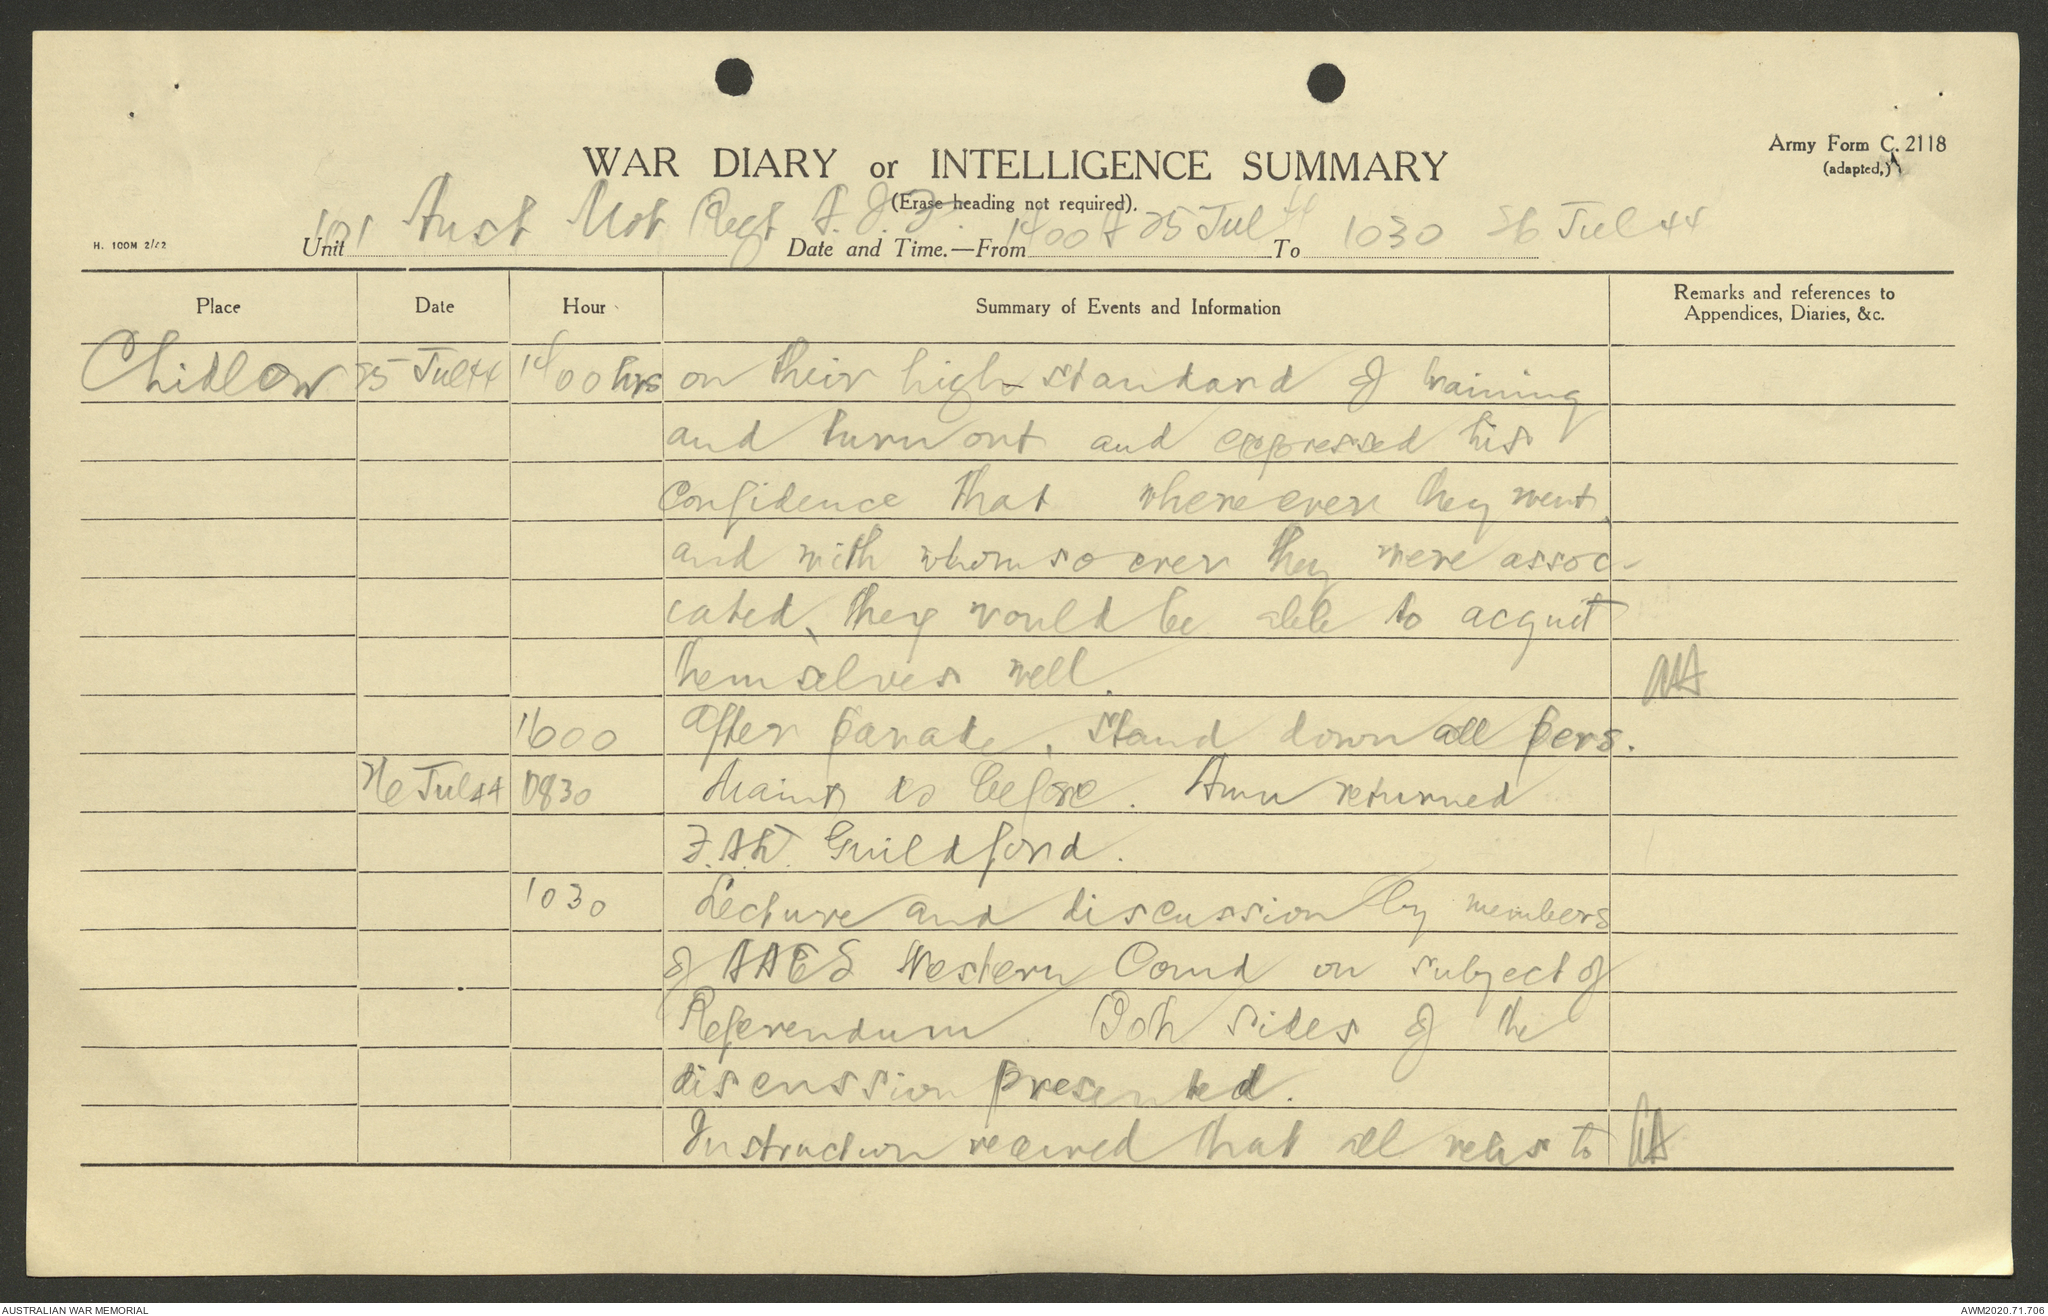 Army Form C. 2118
(adapted,)
WAR DIARY or INTELLIGENCE SUMMARY
(Erase heading not required).
H. 100M 2/42
Unit 101 Aust Mot Regt A.I.F. Date and Time.—From 1400 25 Jul 44 To 1030 26 Jul 44
Place Date Hour Summary of Events and Information Remarks and references to Appendices, Diaries, &c.
Chidlow 25 Jul 44 1400 hrs on their high standard of training
and turn out and expressed his
confidence that whereever they went,
and with whomsoever they were assoc-
iated, they would be able to acquit
themselves well.
1600 After parade, stand down all pers.
26 Jul 44 0830 Maint as before. Amn returned
Guildford.
1030 Lecture and discussion by members
of AAES Western Comd on subject of
Referendum. Both sides of the
discussion presented.
Instruction received that all to
AUSTRALIAN WAR MEMORIAL
AWM2020.71.706